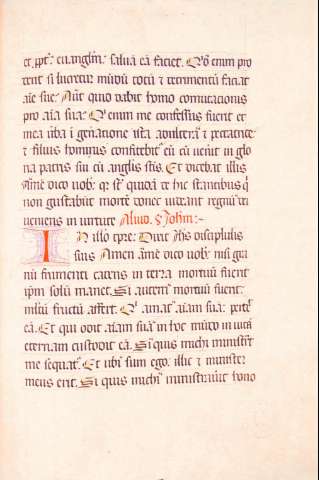 et ꝓpt̄ euangliū. saluā eā faciet. Qͥd enim pro
derit si lucretur mūdū totū ⁊ detrimentū faciat
aīe sue. Aut quid dabit homo cōmutacionis
pro aīa sua. Qͥ enim me confessus fuerit et
mea ūba ī gn̄atione ista adultera ⁊ peccatrice
⁊ filius hominis confitebit̄ eū cū ueīit in glo
ria patris sui cū anglis sc̄is. Et dicebat illis
Amē dico uob̄ qꝛ st̄ quidā de hic stantibus qͥ
non gustabūt mortē donec uideant regnū dei
ueniens in uirtute Aliud. S. Ioh̄m
IN illo tp̄re. Dixit ih̄s discipulis
suis Amen amē dico uob̄. nisi gra
nū frumenti cadens in terra mortuū fuerit
ipm̄ solū manet. Si autem mortuū fuerit.
mltū fructū affert. Qͥ amat aīam suā. perdet
eā. Et qui odit aīam suā in hoc mūdo in uitā
eternam custodit eā. Si quis michi ministrat
me sequat̄. Et ubi sum ego. illic ⁊ minister
meus erit. Si quis michi ministrauit hono